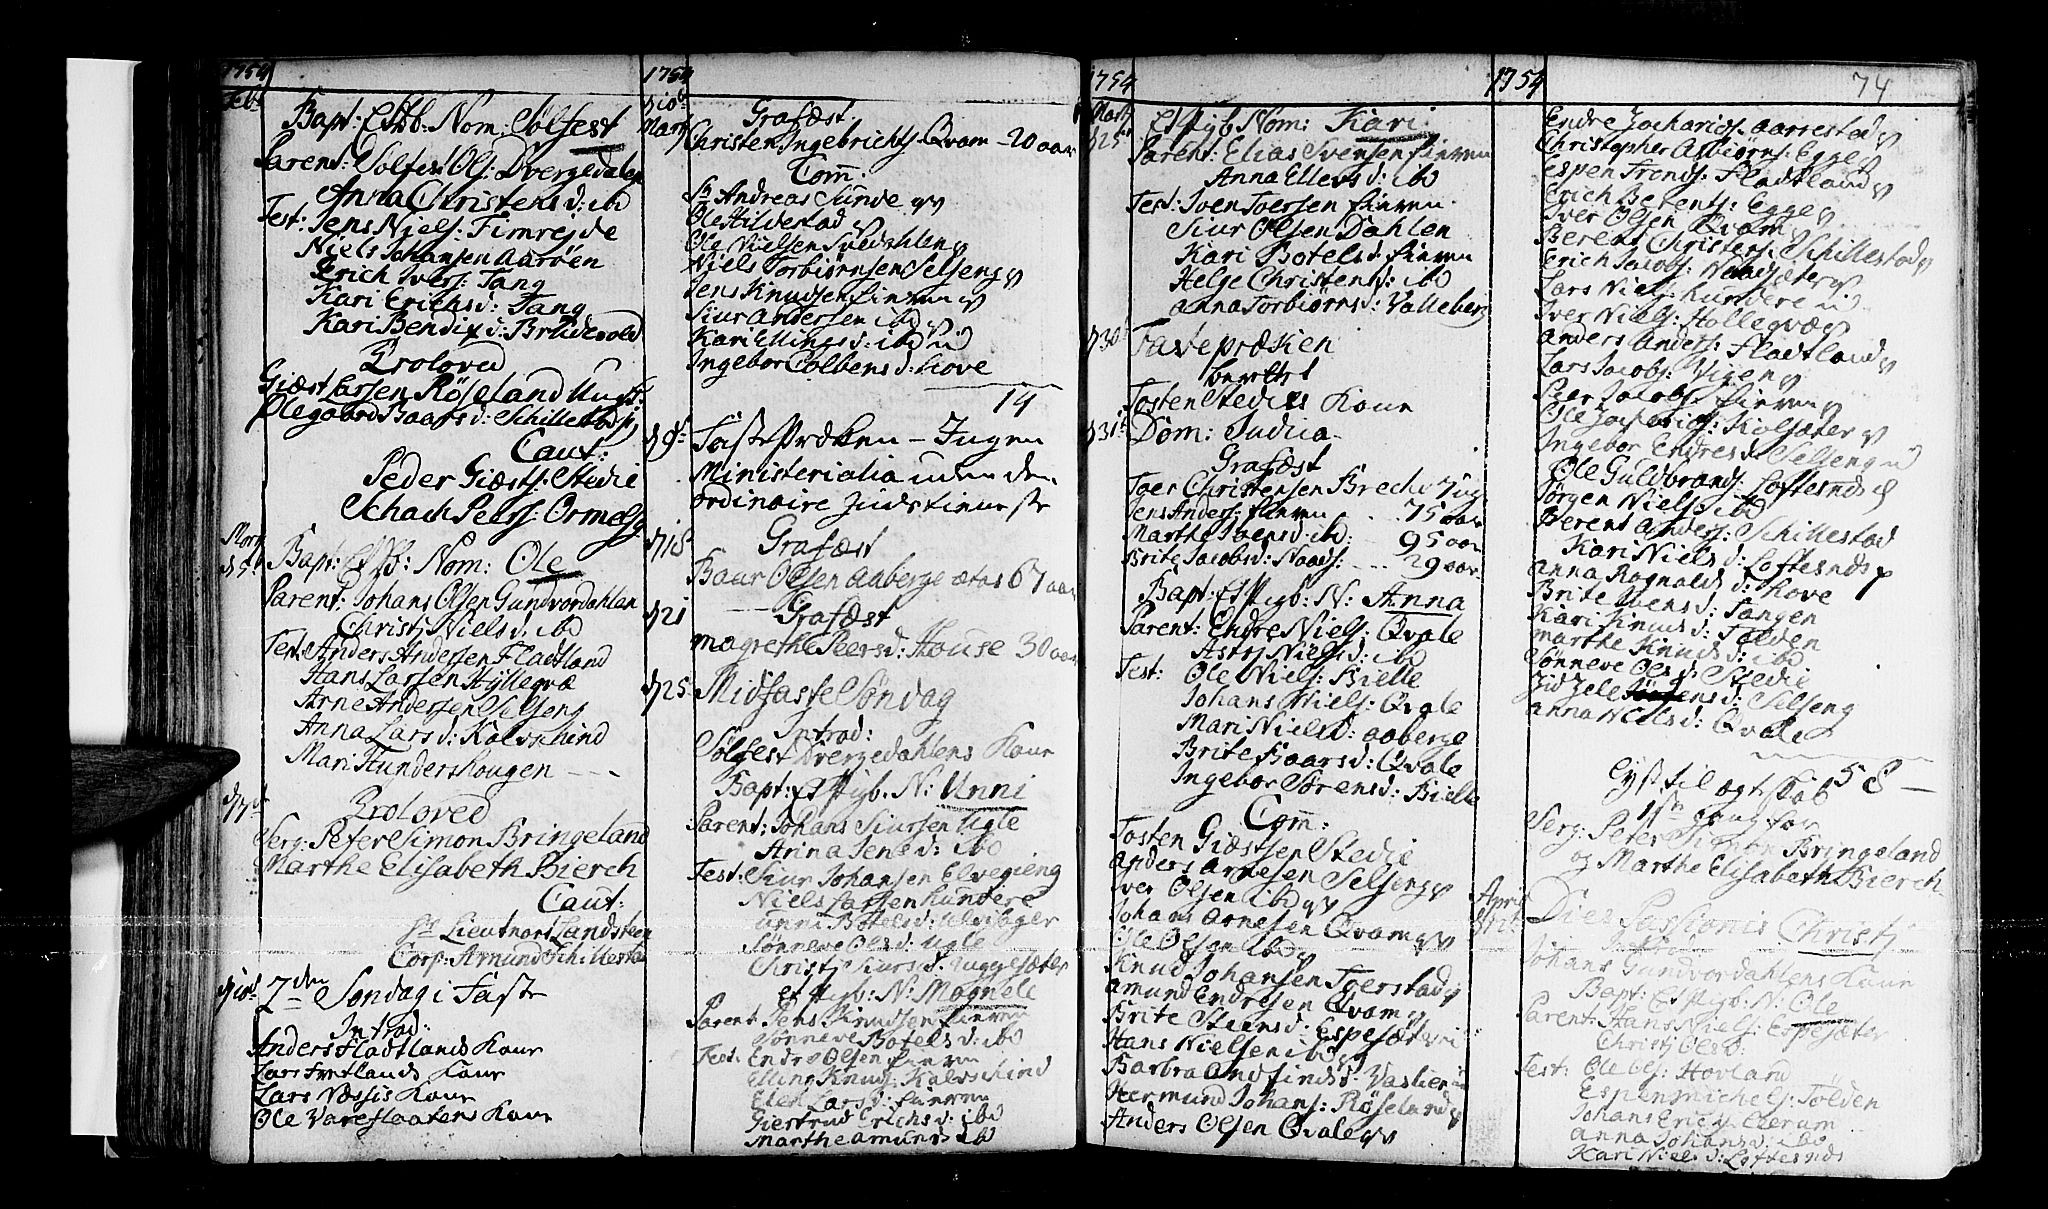 1754
Febr
Bapt: Et Db. Nom: Sølfest
Parent: Solfest Ols: Dvergedalen
Anna Christensd: ibd
Test: Jens Niels: Fimreide
Niels Johansen Aarøen
Erich Ivers: Tang
Kari Erichsd: Tang
Kari Bendixd: Brudevold
Troloved
Giæst Larsen Røseland Ung:
Olegaard Baarsd: Schillestad
Caut:
Peder Giæsts: Stedie
Schach Peers: Ormels
Marty
d 5t
Bapt: Nom: Ole
Parent: Johans Olsen Gundvordahlen
Christi Nielsd: ibd
Test: Anders Andersen Fladtland
Hans Larsen Hyllegvæ
Arne Andersen Selseng
Anna Larsd: Kalvschind
Mari Hundershougen
d 7de
Troloved
Serg: Peter Simon Bringeland
Marthe Elisabeth Bierch
Caut:
Hr Lieutnort Landsteen
Corp: Amund Schillestad
d 10t 2den Søndag i Faste
Introd:
Anders Fladtlands Kone
Lars Fretlands Kone
Lars Næssis Kone
Ole Vareslaatens Kone
1754
d 10t
Marty
Grafæst
Christen Ingebrichts Qvam - 20 aar
Com.
Sr Andreas Sunde
Ole Hildestad
Ole Nielsen Svedahlen
Niels Torbiørnsen Selseng
Jens Knudsen Finven
Siur Andersen ibd
Kari Ellingsd: ibd
Ingebor Colbensd: Hove
14
d 9t Faste Præken - Ingen
Ministerialia uden den
ordinaire Gudstieneste
d 18
Grafæst
Baar Olsen Aaberge ætas 67 aar
d 21 Grafæst
Magrethe Peersd: House 30 aar
d 25 Midfaste Søndag
Introd:
Sølfest Dvergedahlens Kone
Bapt: Et Pigb. N: Unni
Parent: Johans Siursen Ugle
Anna Jensd: ibd
Test: Siur Johansen Elvegieng
Niels Larsen Hundere
Unni Botelsd:
Sønneve Olsd: Ugle
Christi Siursd:
et Pigb: N: Magnele
Parent: Jens Knudsen Finven
Sønneve Botelsd: ibd
Test: Endre Olsen Finven
Elling Knuds: Kalvschind
Elen Larsd: Finven
Giertrud Erichsd: ibd
Marthe Amundsd ibd
1754
Marty
d 25
Et Pigb. Nom: Kari
Parent: Elias Svensen Finven
Anna Ellevsd: ibd
Test: Iven Toersen Finven
Siur Olsen Dahlen
Kari Botelsd Finven
Helge Christensd: ibd
Anna Torbiørnsd: Valleberg
d 30 Fastepræken
berettet
Tosten Stedies Kone
d 31t Dom: Judica
Grafæst
Toer Christensen Brech 7 ug
Jens Anders: Finven - 75 aar
Marthe Joensd: ibd: - 95 aar
Brite Jacobsd: Naads: - 29 aar
Bapt: Et Pigb: N: Anna
Parent: Endre Niels: Qvale
Astri Nielsd: ibd
Test: Ole Niels: Bielle
Johans Niels: Qvale
Mari Nielsd: Aaberge
Brite Baarsd: Qvale
Ingebor Sørensd: Bielle
Com:
Tosten Giæstsen Stedie
Anders Arnesen Selseng
Iver Olsen ibd
Johans Arnesen Qvam
Ole Olsen ibd
Knud Johansen Foerstad
Amund Endresen Qvam
Brite Steensd: Espesæter
Hans Nielsen ibd
Barbra Andfindsd: Vastien
Hermund Johans: Røseland
Anders Olsen Qvale
1754
74
Endre Zacharids: Aarrestad
Christopher Asbiørns: Egge
Espen Tronds: Fladtland
Erich Berents: Egge
Iver Olsen Qvam
Berent Christens: Schillestad
Erich Jacobs: Naadsæter
Lars Niels: Hundere
Iver Niels: Hollegvæ
Anders Anders: Fladtland
Lars Jacobs: Vigen
Peer Jacobs: Finven
Ole Zacharids: Kolsæter
Ingebor Endresd: Selseng
Ole Guldbrands: Loftesnds
Jørgen Niels: ibd
Berent Anders: Schillestad
Kari Nielsd: Loftesnds
Anna Rognaldsd: Hove
Brite Ivensd: Fangen
Kari Knudsd: Tølden
Marthe Knudsd: ibd
Sønneve Olsd: Stedie
Zidzele Selseng
Anna Nielsd: Qvale
58
Lyst til Ægteskab
1ste gang for
Serg: Peter Simon Bringeland
og Marthe Elisabeth Bierch
April
d 12t Dies Passionis Christi
Introd:
Johans Gundvordahlens Kone
Bapt: Et Pigb: N: Ole
Parent: Hans Niels: Espesæter
Christi Olsd:
Test: Ole Ols: Hovland
Espen Michels: Tølden
Johans Erichs:
Anna Johansd: ibd
Kari Nielsd: Loftesnds